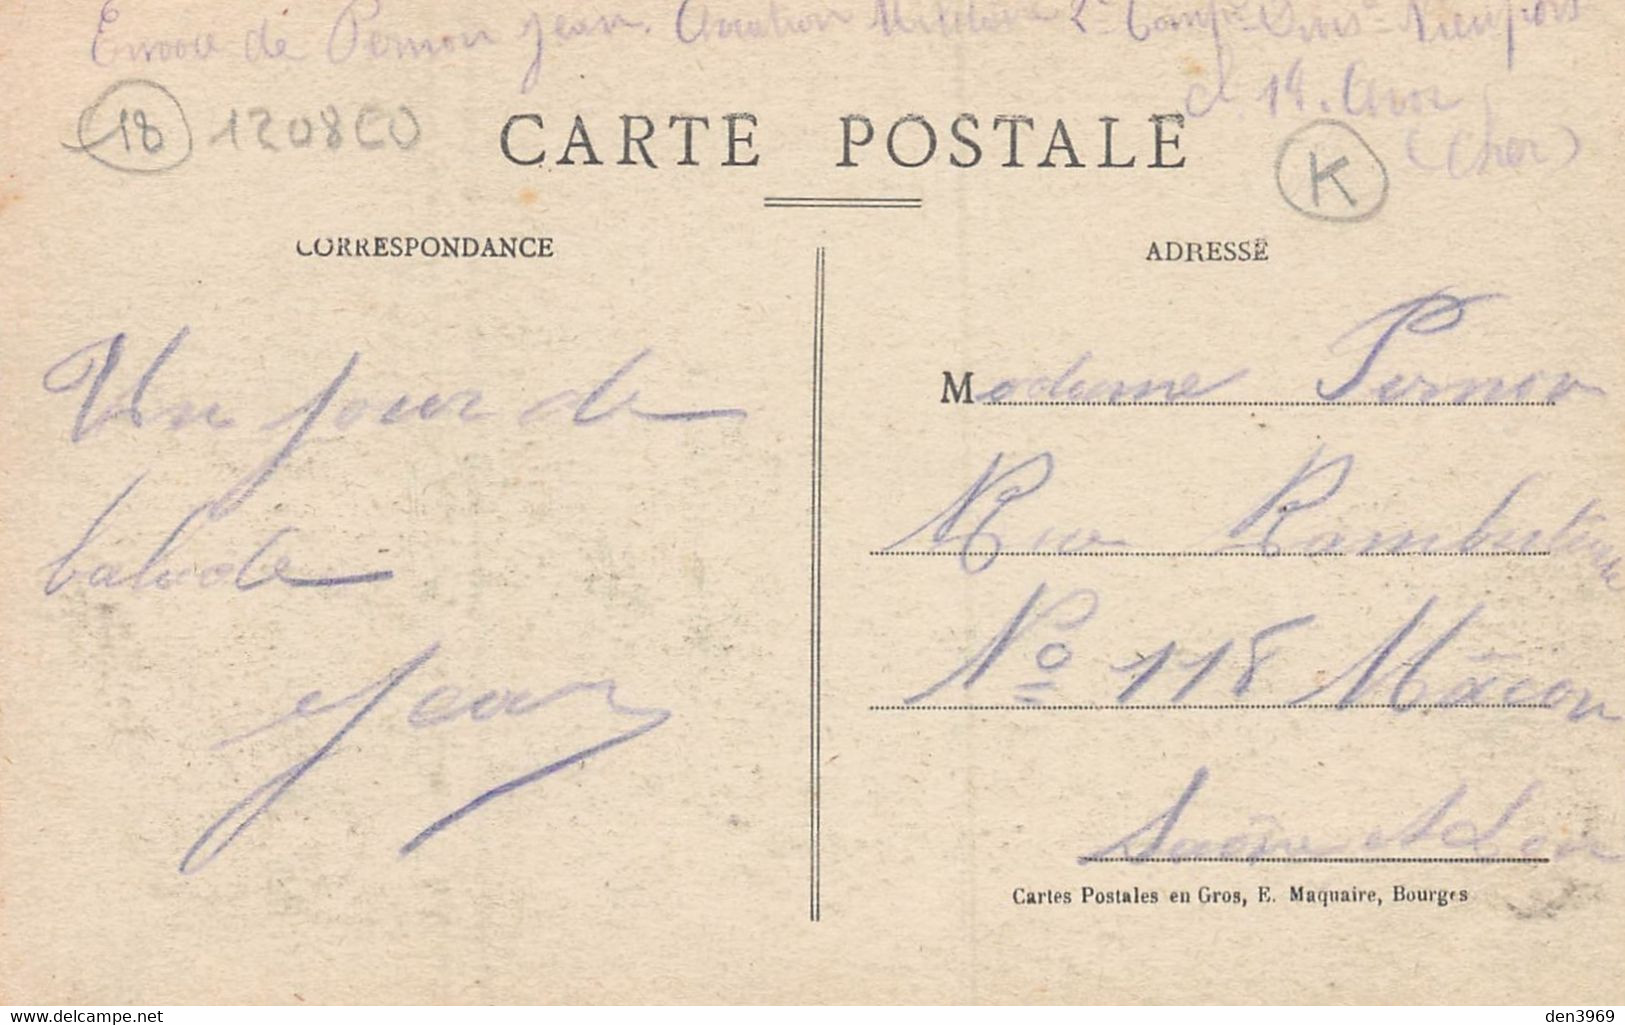 Envoie de Pernon Jean. Aviation Militaire 2e Comp Divis Nieuport
cl. 14. Avor
(Cher)
18 1208CO
CARTE POSTALE
K
CORRESPONDANCE
ADRESSE
Un jour de
balade
Jean
Madame Pernon
Rue Rambuteau
No 118 Mâcon
Saône et Loire
Cartes Postales en Gros, E. Maquaire, Bourges
www.delcampe.net
den3969